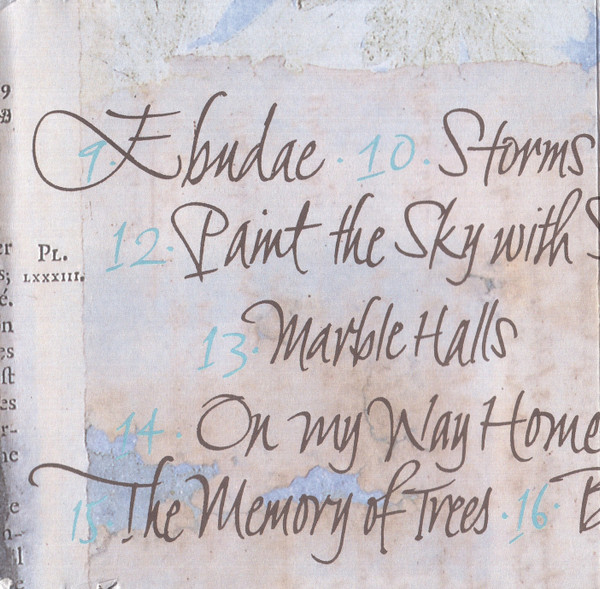 9
9. Ebudae · 10. Storms
12. Paint the Sky with S
er PL.
s; LXXXIII.
é.
on
es 13. Marble Halls
ſt
es 14. On my Way Home
r-
ne
15. The Memory of Trees · 16. B
e
n-
l
e